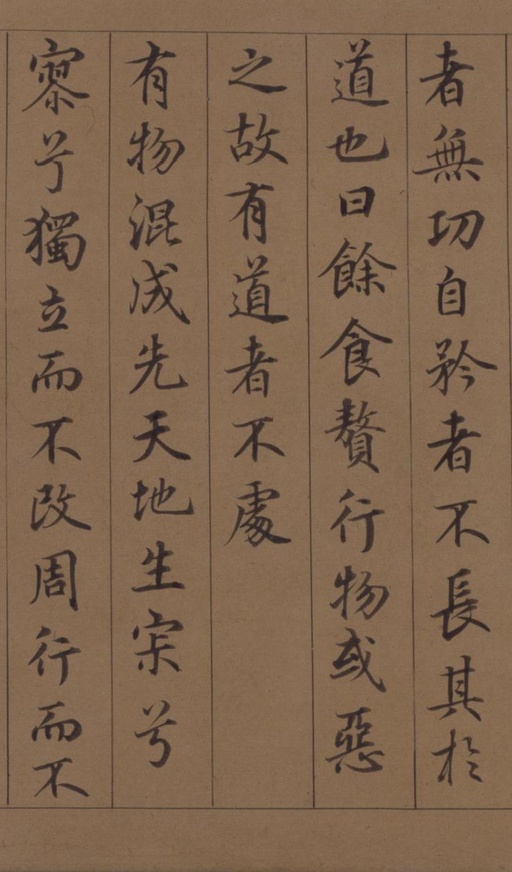 者無功自矜者不長其於
道也曰餘食贅行物或惡
之故有道者不處
有物混成先天地生寂兮
寥兮獨立而不改周行而不